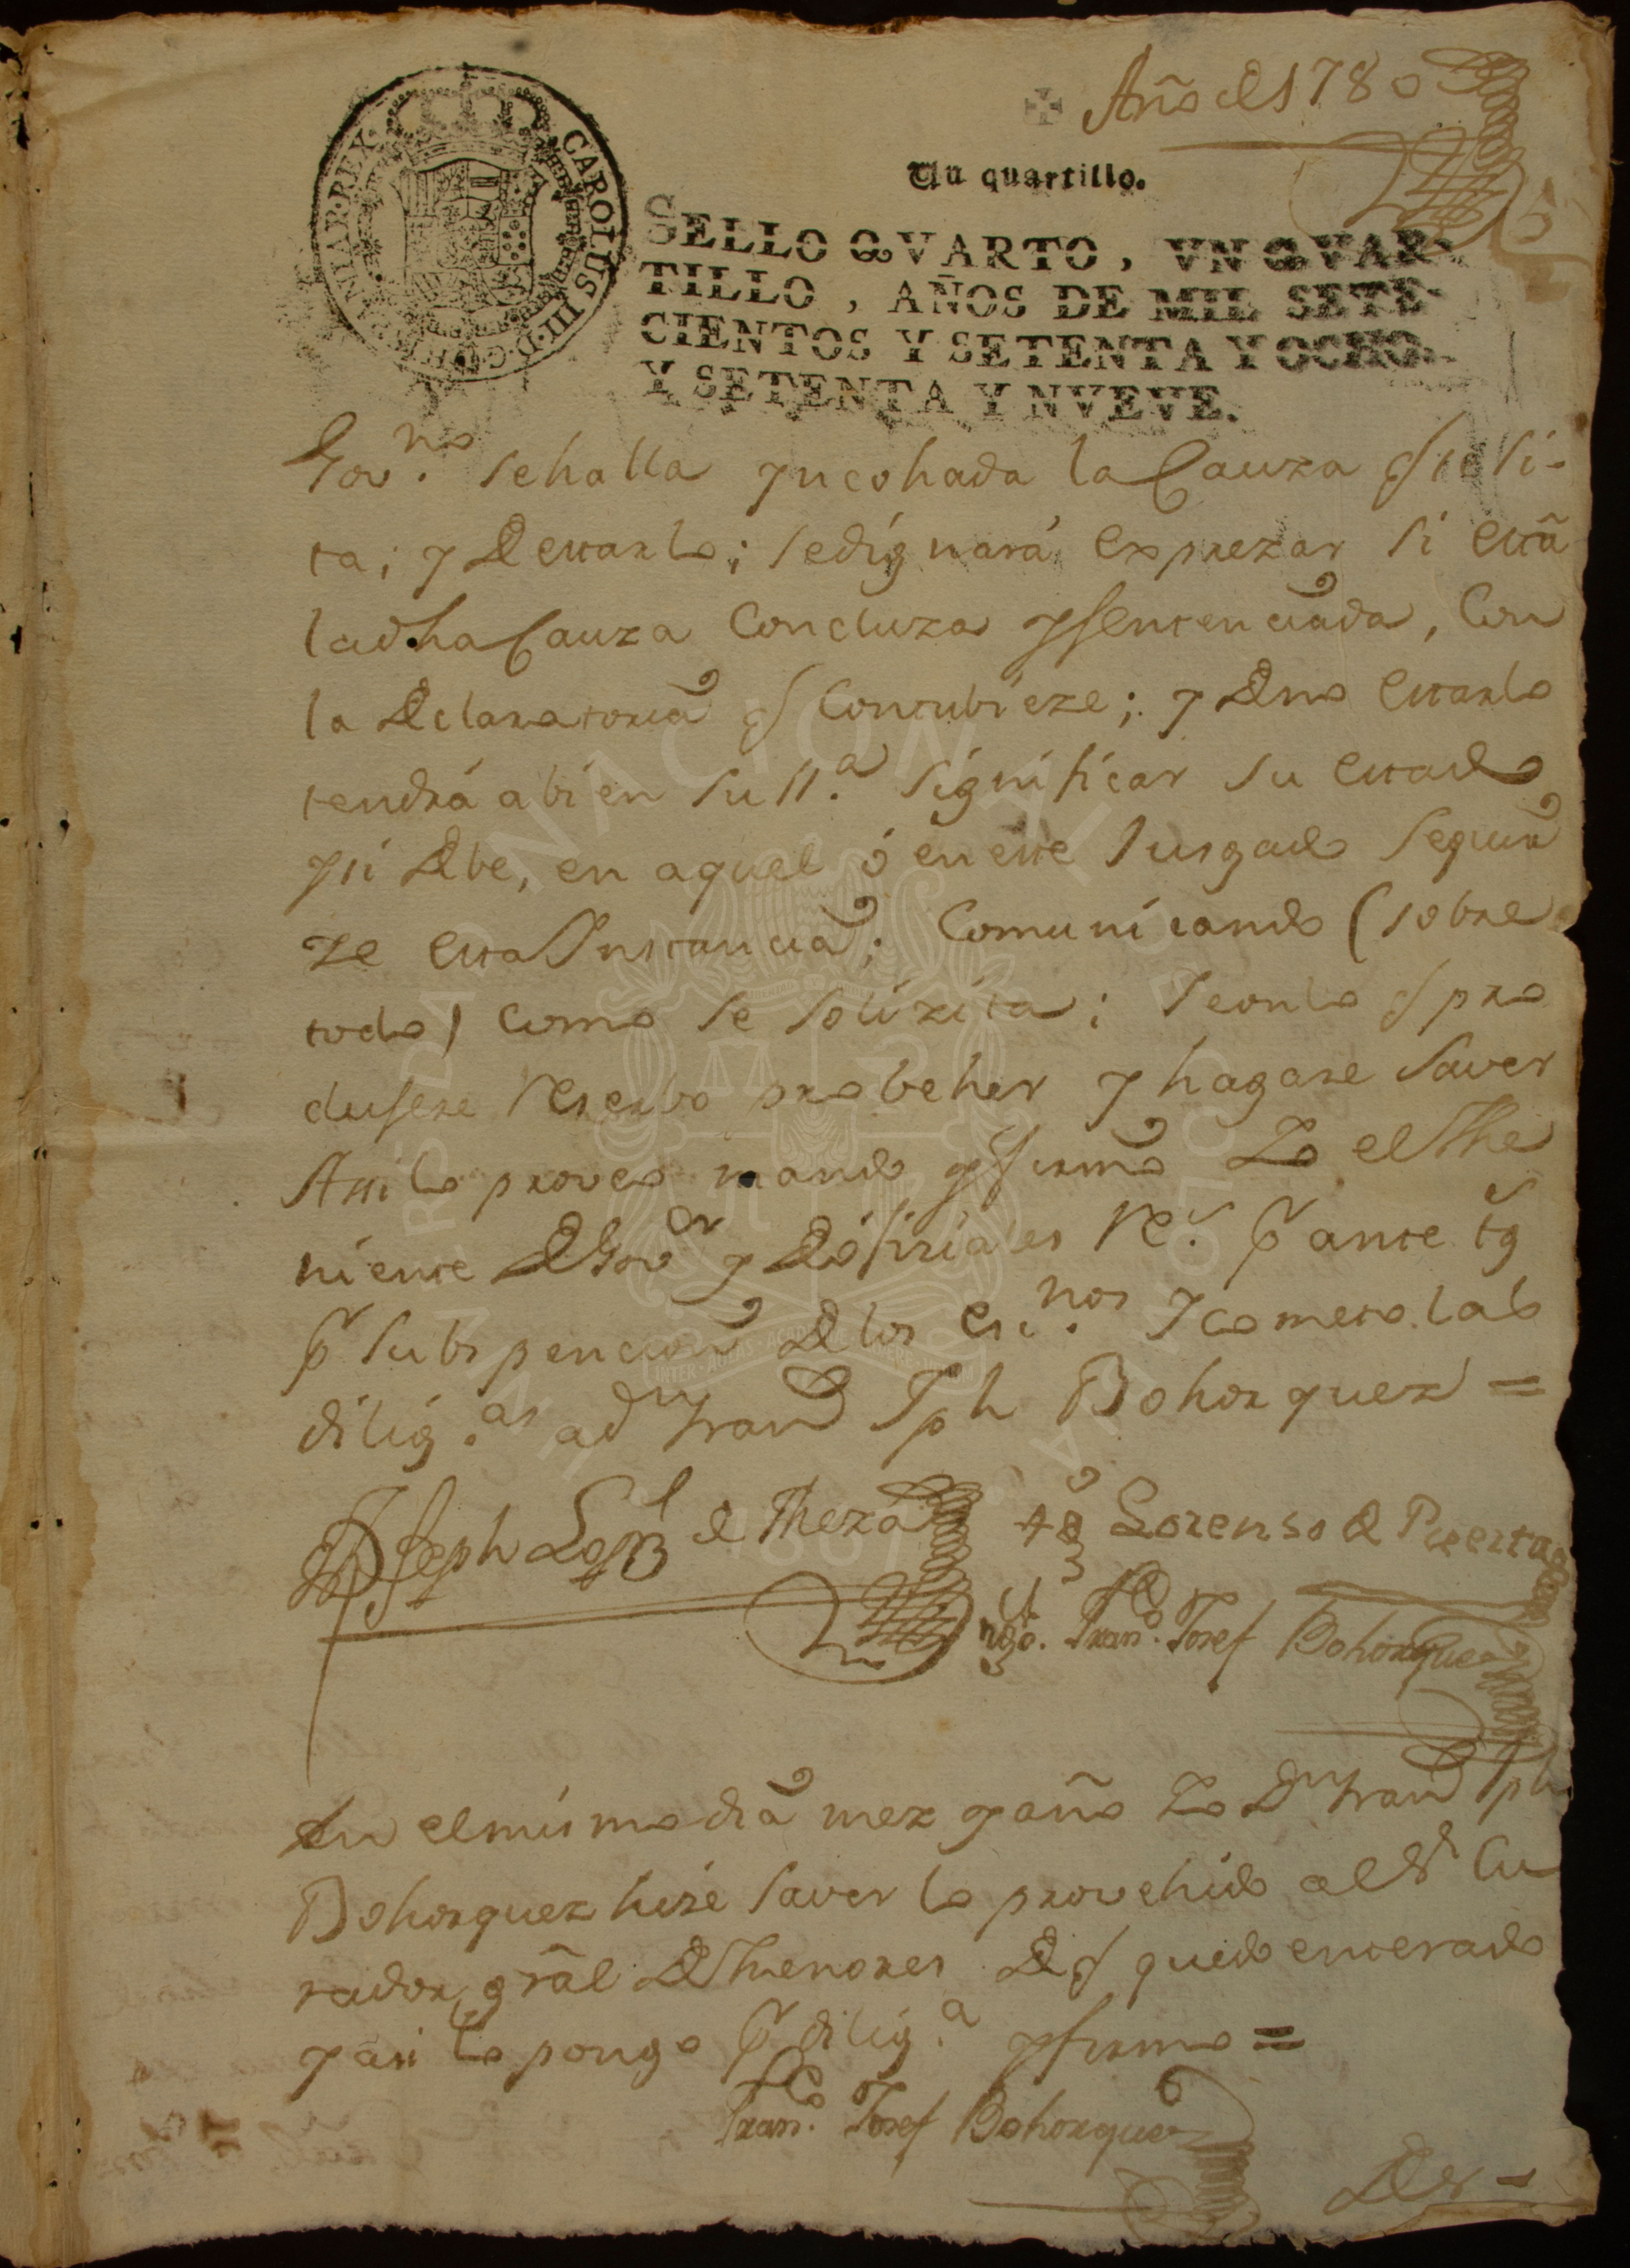 Año de 1780
5
Un quartillo.
CAROLUS III. D. G. HISPANIAR. REX.
SELLO QVARTO, VN QVAR-
TILLO, AÑOS DE MIL SETE-
CIENTOS Y SETENTA Y OCHO,
Y SETENTA Y NVEVE.
Gov.no se halla yncohada la Cauza q̃ se si-
ta; y de estarlo; se dignará exprezar si está
la dha Cauza Concluza y sentenciada, Con
la Declaratoria q̃ Contubieze; y de no estarlo
tendrá a bien su Mª. significar su estado
y si debe, en aquel ó en este Jusgado seguir
ze esta Instancia; Comunicando (sobre
todo) como se solizita; i con lo q̃ pro
dusere reserbo probeher y hagase saver
Assi lo proveo mando y firmo Yo el The
niente de Govor y Ofiziales Re.s pr ante tg
pr subspencion de los Esc.nos Y cometo las
dilig.as a dn Franco Jph Bohorquez =
Joseph Lopz de Meza
tgo Lorenso de Puerta
tgo. Franco. Josef Bohorquez
En el mismo dia mez y año Yo Dn Franco Jph
Bohorquez hize saver lo provehido al Sr Cu
rador gr̃al de Menores de q̃ quedo enterado
y assi lo pongo pr dilig.a y firmo =
Franco. Josef Bohorquez
Der =
UNIVERSIDAD NACIONAL DE COLOMBIA
1867